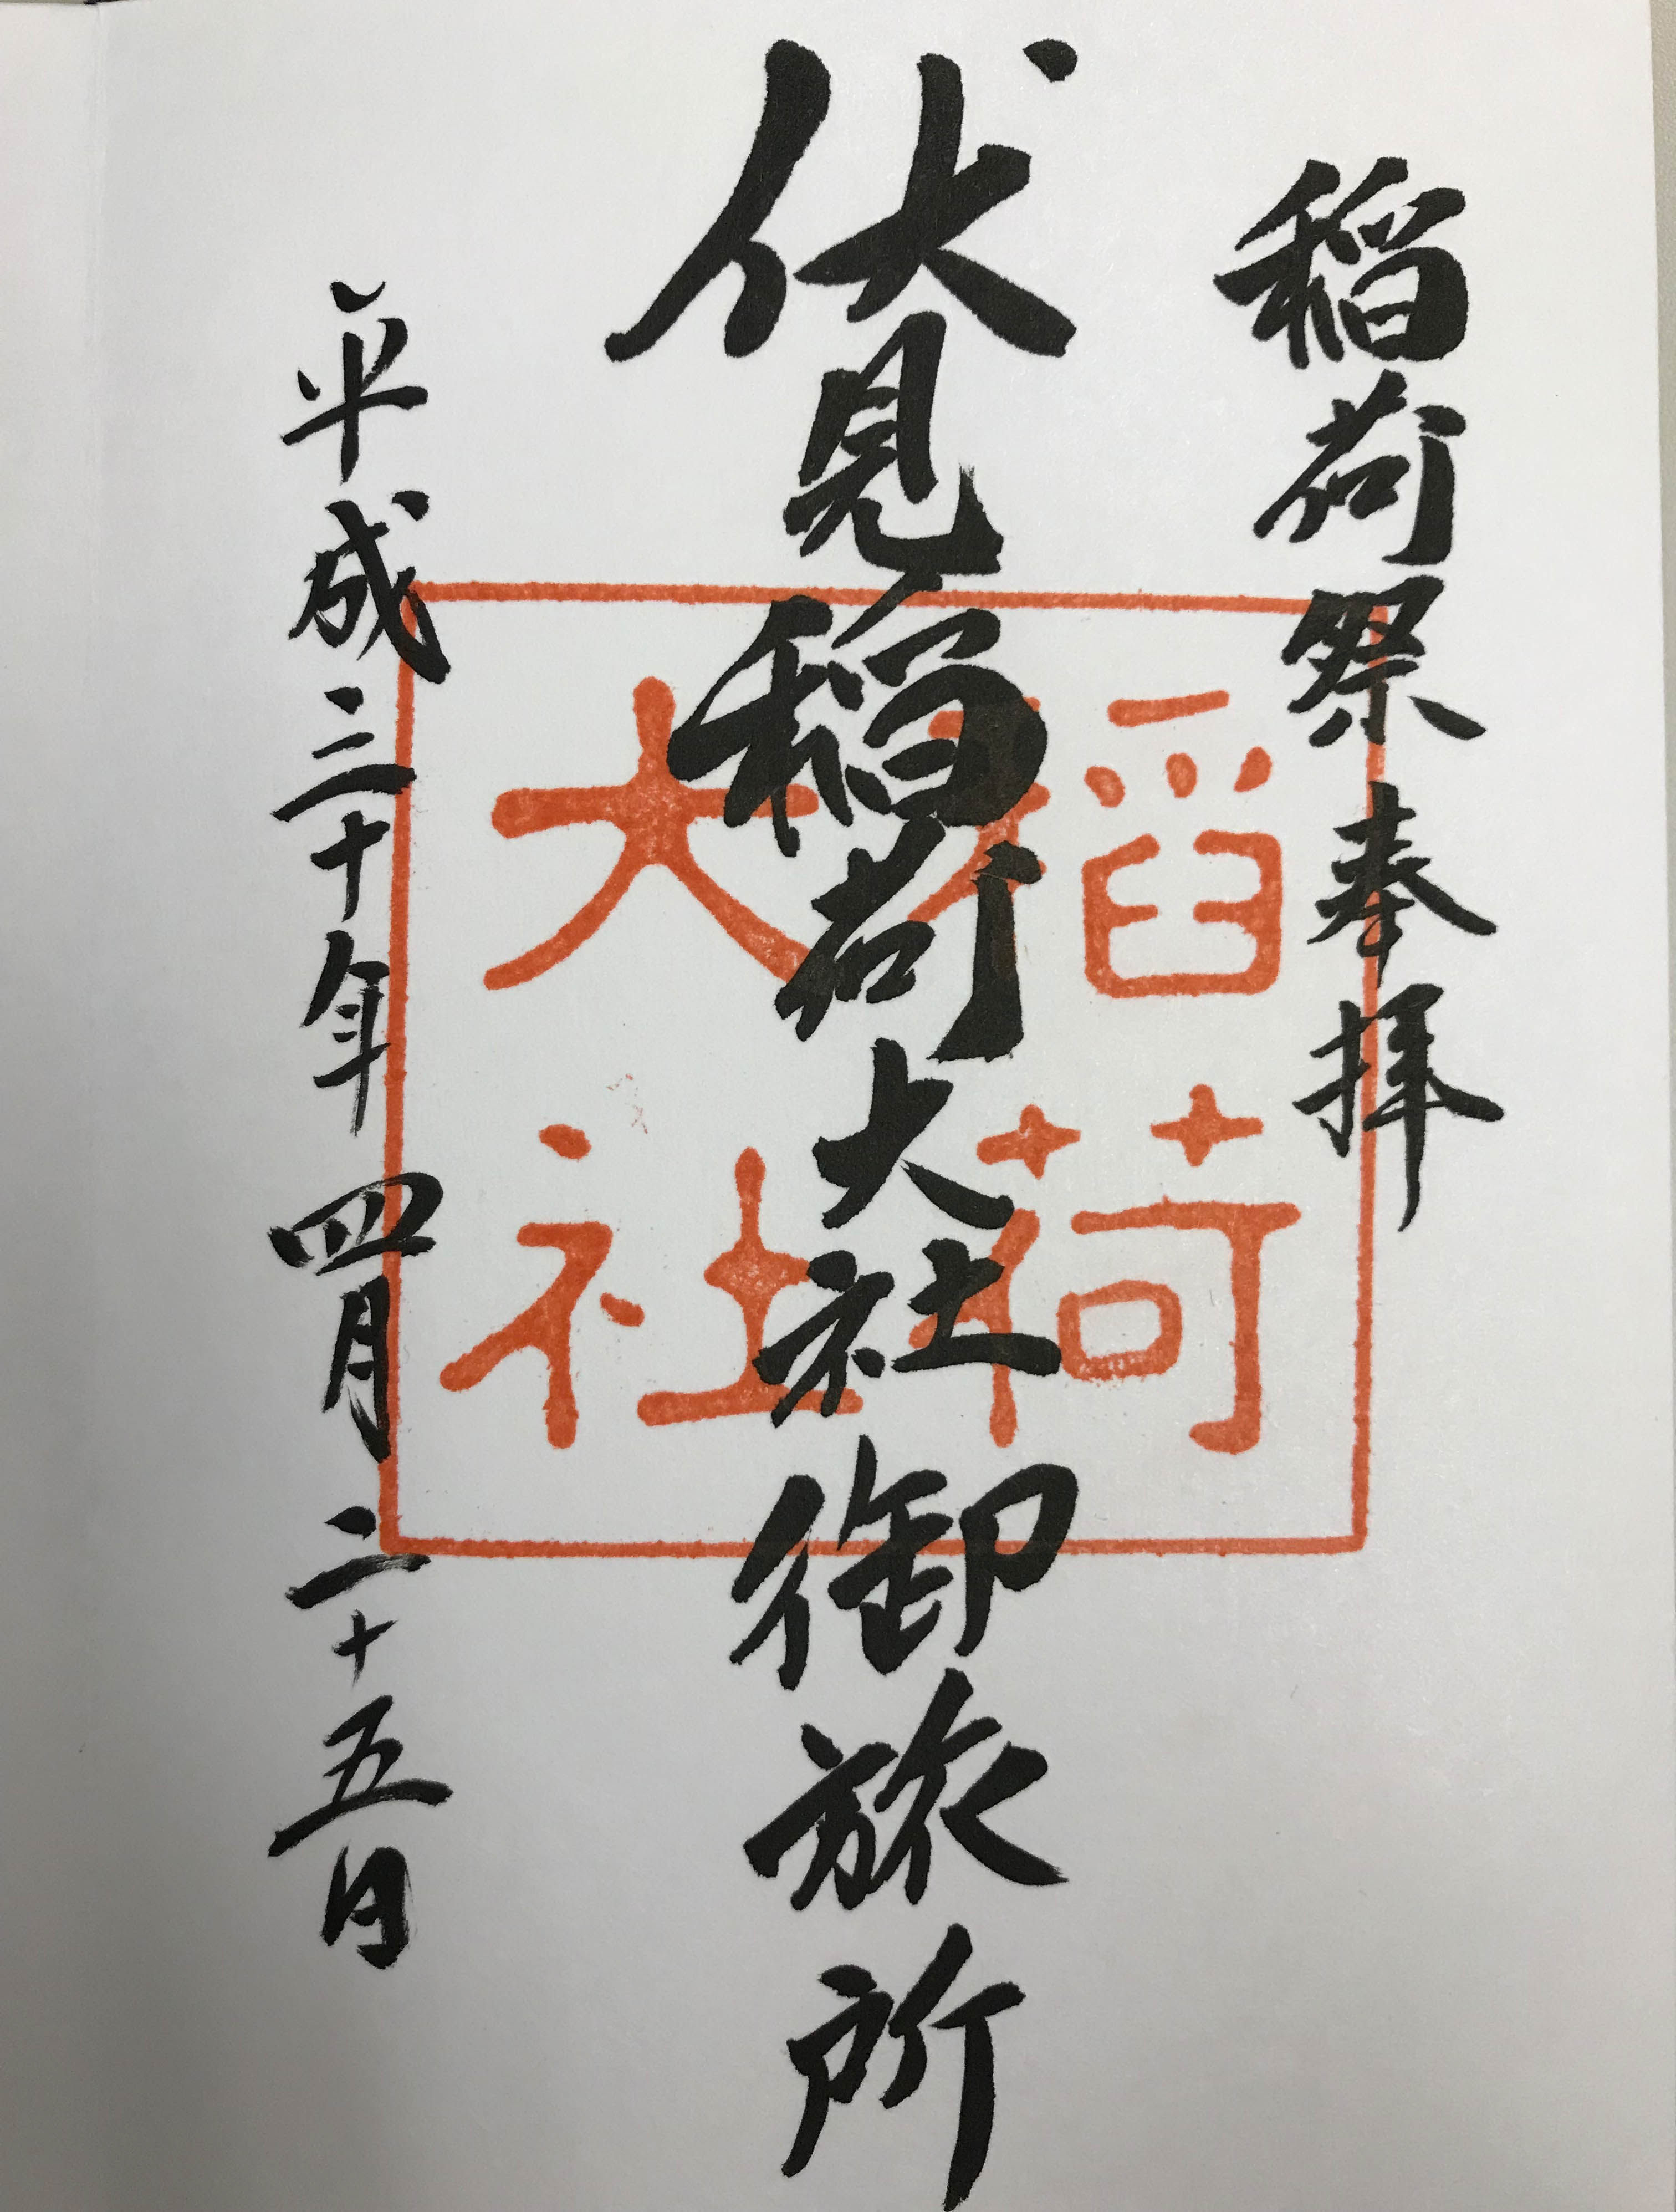 稲荷祭奉拝
伏見稲荷大社御旅所
平成三十年四月二十五日
稲荷
大社